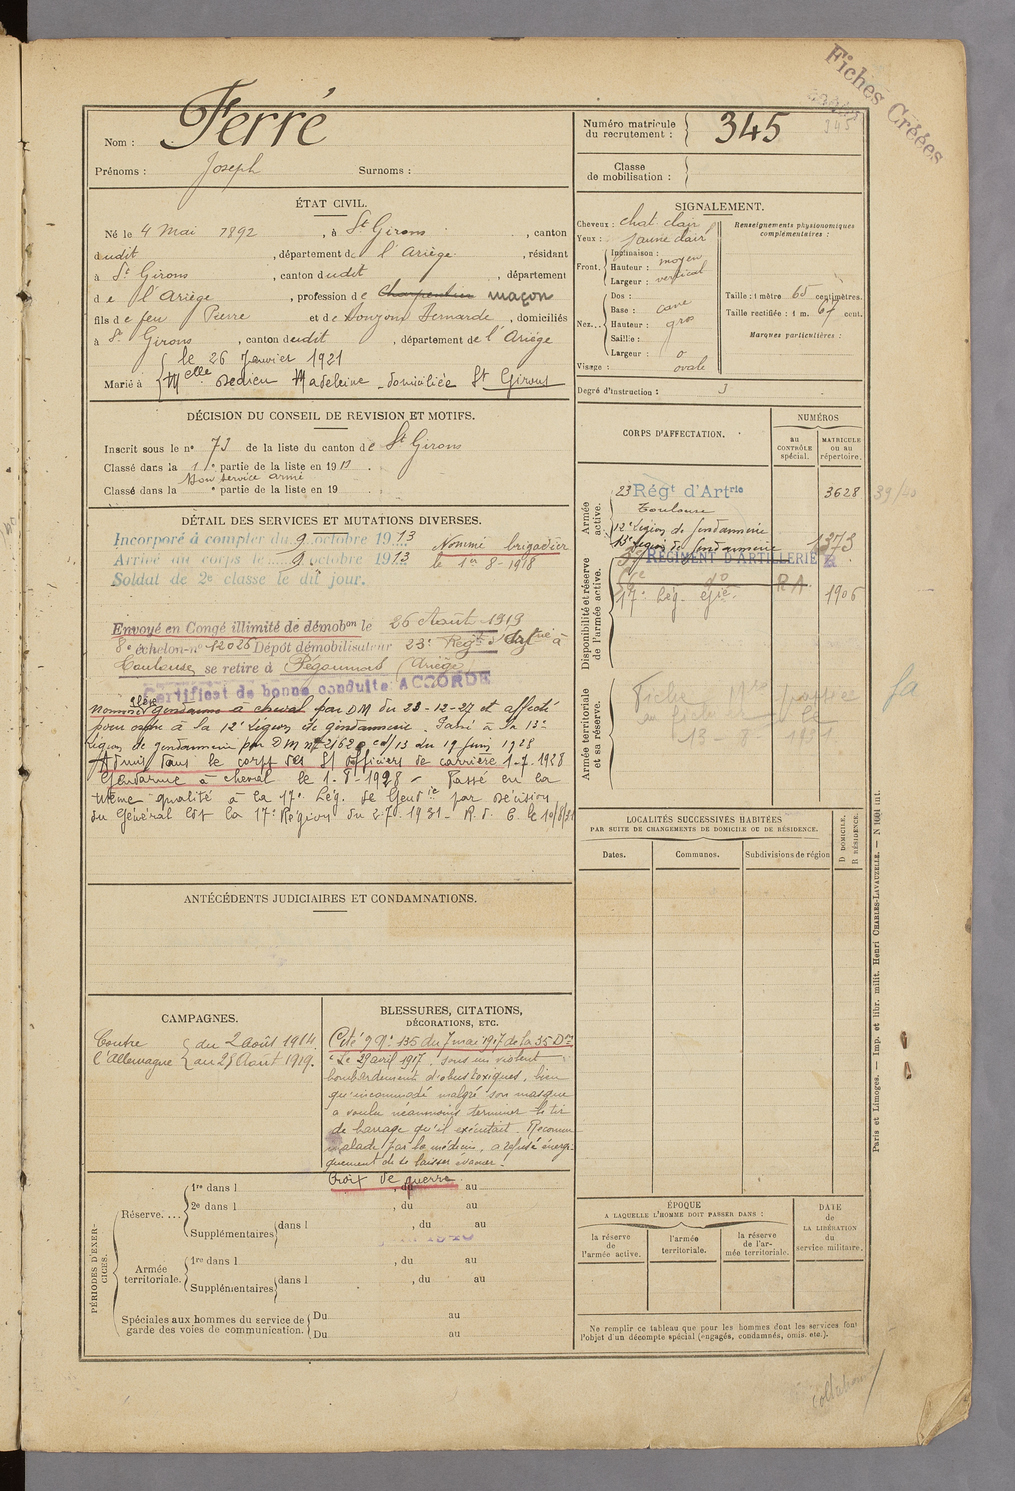 Fiches Créées
345
Nom : Ferré
Prénoms : Joseph Surnoms :
Numéro matricule du recrutement : 345
Classe de mobilisation :
ÉTAT CIVIL.
Né le 4 Mai 1892, à St Girons, canton
dudit, département de l'Ariège, résidant
à St Girons, canton dudit, département
de l'Ariège, profession de Charpentier maçon
fils de feu Pierre et de Bernarde, domiciliés
à St Girons, canton dudit, département de l'Ariège
le 26 Janvier 1921
Marié à Melle Madeleine domiciliée St Girons
SIGNALEMENT.
Cheveux : chat clair
Yeux : jaune clair
Front. Inclinaison :
Hauteur : moyen
Largeur : vertical
Nez... Dos :
Base : cave
Hauteur : gros
Saillie :
Largeur : o
Visage : ovale
Renseignements physionomiques complémentaires :
Taille : 1 mètre 65 centimètres.
Taille rectifiée : 1 m. 67 cent.
Marques particulières :
Degré d'instruction : 3
DÉCISION DU CONSEIL DE REVISION ET MOTIFS.
Inscrit sous le no 73 de la liste du canton de St Girons
Classé dans la 1e partie de la liste en 19
Bon service armé
Classé dans la e partie de la liste en 19
CORPS D'AFFECTATION.
NUMÉROS
au CONTRÔLE spécial.
MATRICULE ou au répertoire.
Armée active.
23 Régt d'Artrie 3628 39/40
Toulouse
12e Légion de Gendarmerie
13e Légion de Gendarmerie 1373
Disponibilité et réserve de l'armée active.
RÉGIMENT D'ARTILLERIE
do RA
17e Lég. Gie. 1906
Armée territoriale et sa réserve.
Fiche
le
13 - 9 - 1931
DÉTAIL DES SERVICES ET MUTATIONS DIVERSES.
Incorporé à compter du 9 octobre 1913
Arrivé au corps le 9 octobre 1913
Soldat de 2e classe le dit jour.
Nommé brigadier
le 1er 8-1918
Envoyé en Congé illimité de démobon le 26 Août 1919
8e échelon no 12026 Dépôt démobilisateur 23e Régt d'Artrie à
Toulouse se retire à (Ariège)
Certificat de bonne conduite ACCORDÉ
nommé élève gendarme à cheval par DM du 23-12-27 et affecté
pour ordre à la 12e Légion de gendarmerie. Passé à la 13e
Légion de Gendarmerie par DM no 2162 du 19 Juin 1928
Admis dans le corps des S/Officiers de carrière 1-7-1928
Gendarme à cheval le 1-8-1928 - Passé en la
même qualité à la 17e Lég. de Gendie par décision
du Général Cdt la 17e Région du 2.7.1931 - R. d. C. le 10/8/31
ANTÉCÉDENTS JUDICIAIRES ET CONDAMNATIONS.
LOCALITÉS SUCCESSIVES HABITÉES
PAR SUITE DE CHANGEMENTS DE DOMICILE OU DE RÉSIDENCE.
Dates. Communes. Subdivisions de région
D DOMICILE. R RÉSIDENCE.
CAMPAGNES.
Contre du 2 août 1914
l'Allemagne au 25 Août 1919.
BLESSURES, CITATIONS, DÉCORATIONS, ETC.
Cité 135 du 7 mai 1917 de la 35 Don
"Le 29 avril 1917 sous un violent
bombardement d'obus toxiques, bien
qu'incommodé malgré son masque
a voulu néanmoins terminer le tir
de barrage qu'il exécutait. Reconnu
malade par le médecin, a refusé énergi-
quement de se laisser évacuer!
Croix de guerre
PÉRIODES D'EXERCICES.
Réserve.... 1re dans l , du au
2e dans l , du au
Supplémentaires dans l , du au
1940
Armée territoriale. 1re dans l , du au
Supplémentaires dans l , du au
Spéciales aux hommes du service de garde des voies de communication. Du au
Du au
ÉPOQUE
A LAQUELLE L'HOMME DOIT PASSER DANS :
la réserve de l'armée active.
l'armée territoriale.
la réserve de l'armée territoriale.
DATE de LA LIBÉRATION du service militaire.
Ne remplir ce tableau que pour les hommes dont les services font
l'objet d'un décompte spécial (engagés, condamnés, omis, etc.).
Paris et Limoges. — Imp. et libr. milit. Henri CHARLES-LAVAUZELLE. — N 1604 int.